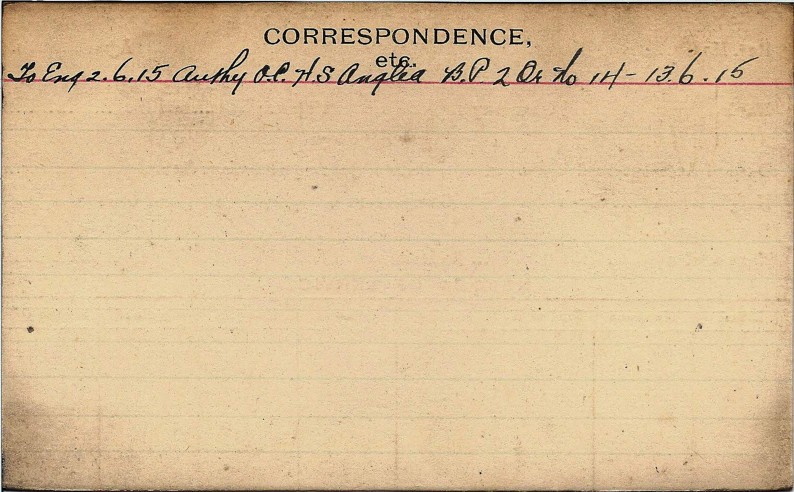 CORRESPONDENCE,
etc.
To Eng 2.6.15 Authy O.C. H.S Anglia B.P 2 Or No 14 - 13.6.15